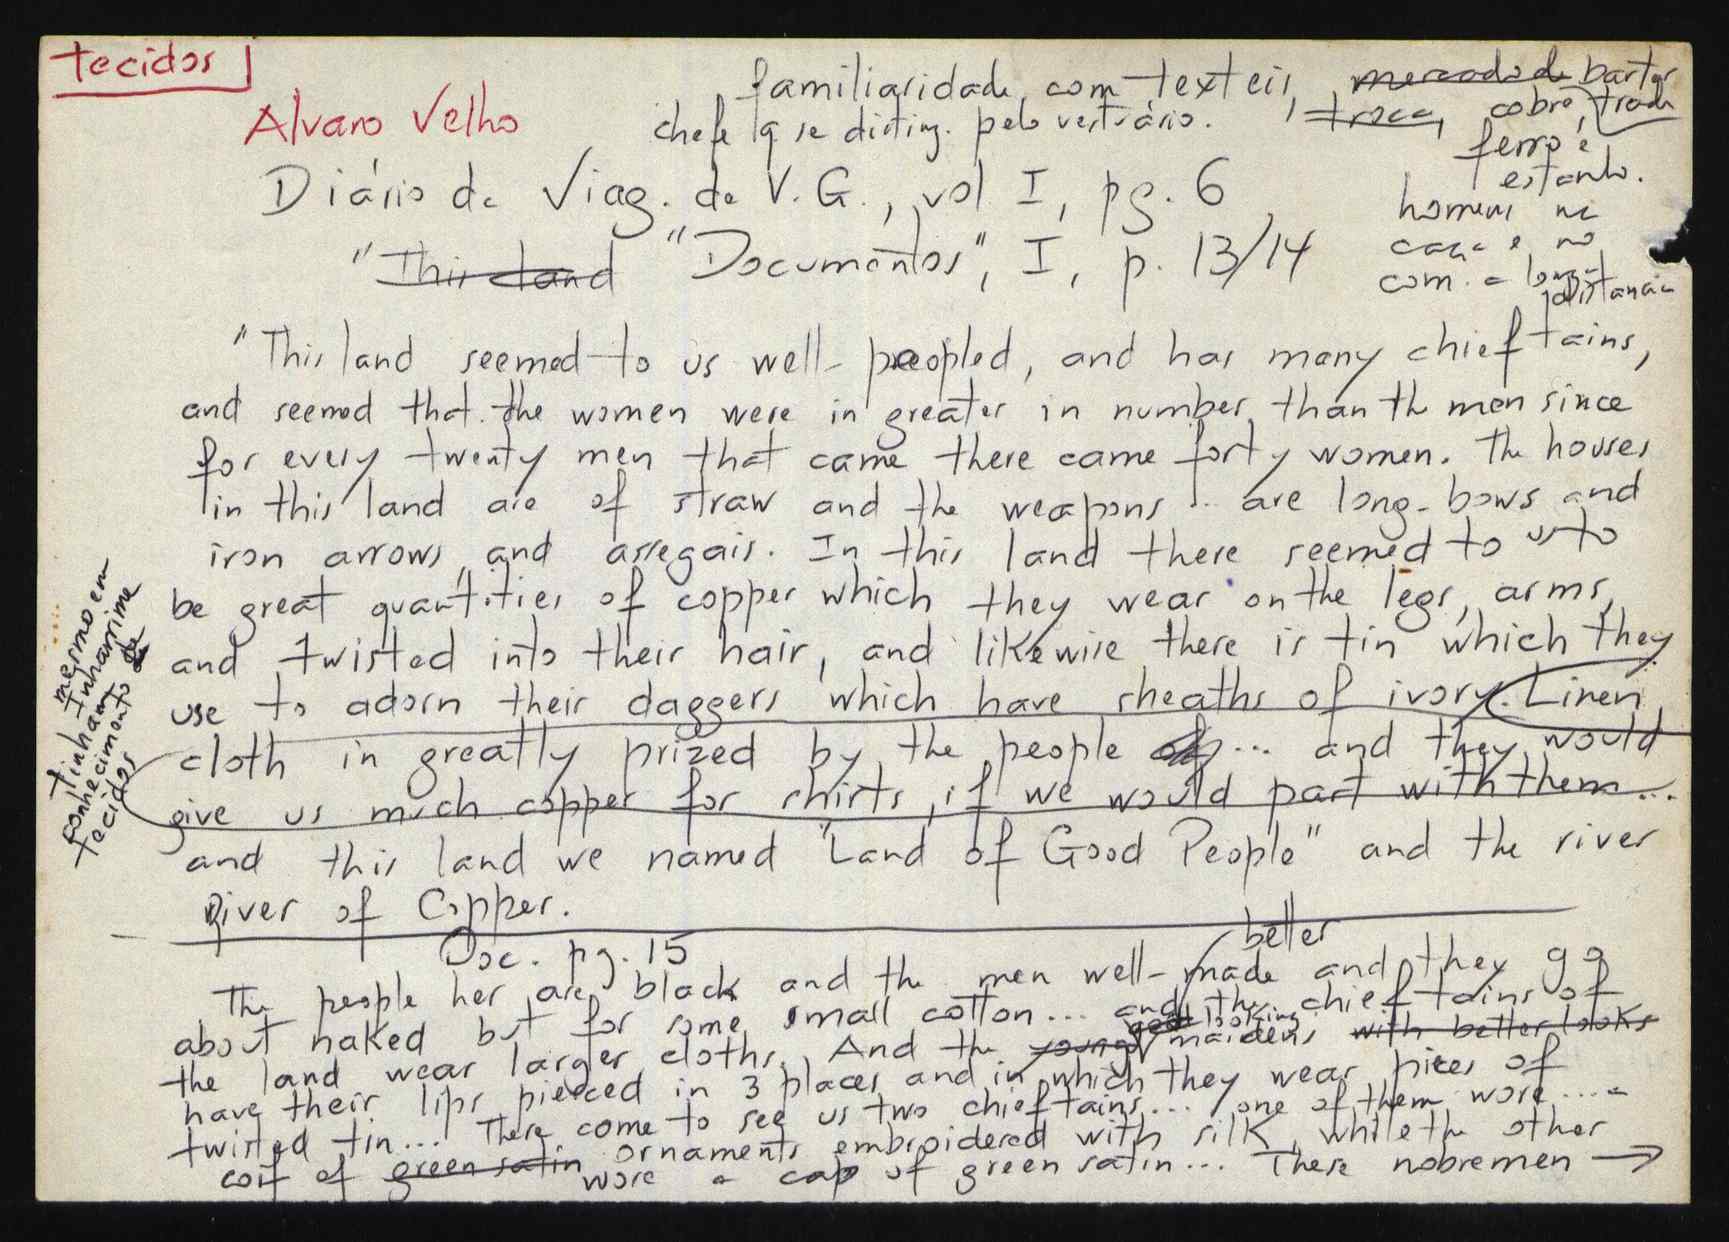 tecidos
familiaridade com texteis, mercado de barter
Alvaro Velho
chefe q se disting. pelo vestuário.
troca, cobre, trade
ferro e
estanho.
Diário de Viag. de V. G., vol I, pg. 6
homens na
caça e no
com. a longa
distancia
"This land "Documentos", I, p. 13/14
"This land seemed to us well-peopled, and has many chieftains,
and seemed that the women were in greater in number than the men since
for every twenty men that came there came forty women. The houses
in this land are of straw and the weapons .. are long-bows and
iron arrows, and assegais. In this land there seemed to us to
be great quantities of copper which they wear on the legs, arms,
and twisted into their hair, and likewise there is tin which they
use to adorn their daggers which have sheaths of ivory. Linen
cloth in greatly prized by the people of ... and they would
give us much copper for shirts, if we would part with them...
and this land we named "Land of Good People" and the river
River of Copper.
mesmo em
Inharrime
tinham
conhecimento de
tecidos
Doc. pg. 15
better
The people her are black and the men well-made and they go
about naked but for some small cotton... and the chieftains of
the land wear larger cloths. And the young good looking maidens with better looks
have their lips pierced in 3 places and in which they wear pices of
twisted tin... There come to see us two chieftains... one of them wore .... a
coif of green satin ornaments embroidered with silk, while the other
wore a cap of green satin... These nobremen →